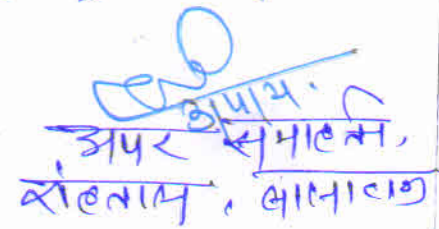 अपर समाहर्ता,
रोहतास, सासाराम